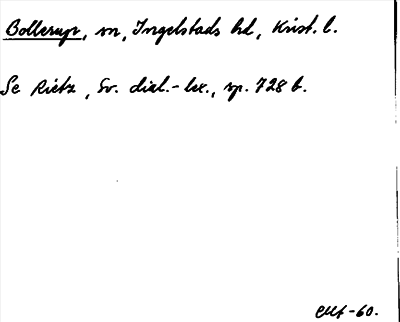 Bollerup, sn, Ingelstads hd, Krist. l.
Se Rietz, Sv. dial.-lex., sp. 728 b.
-60.